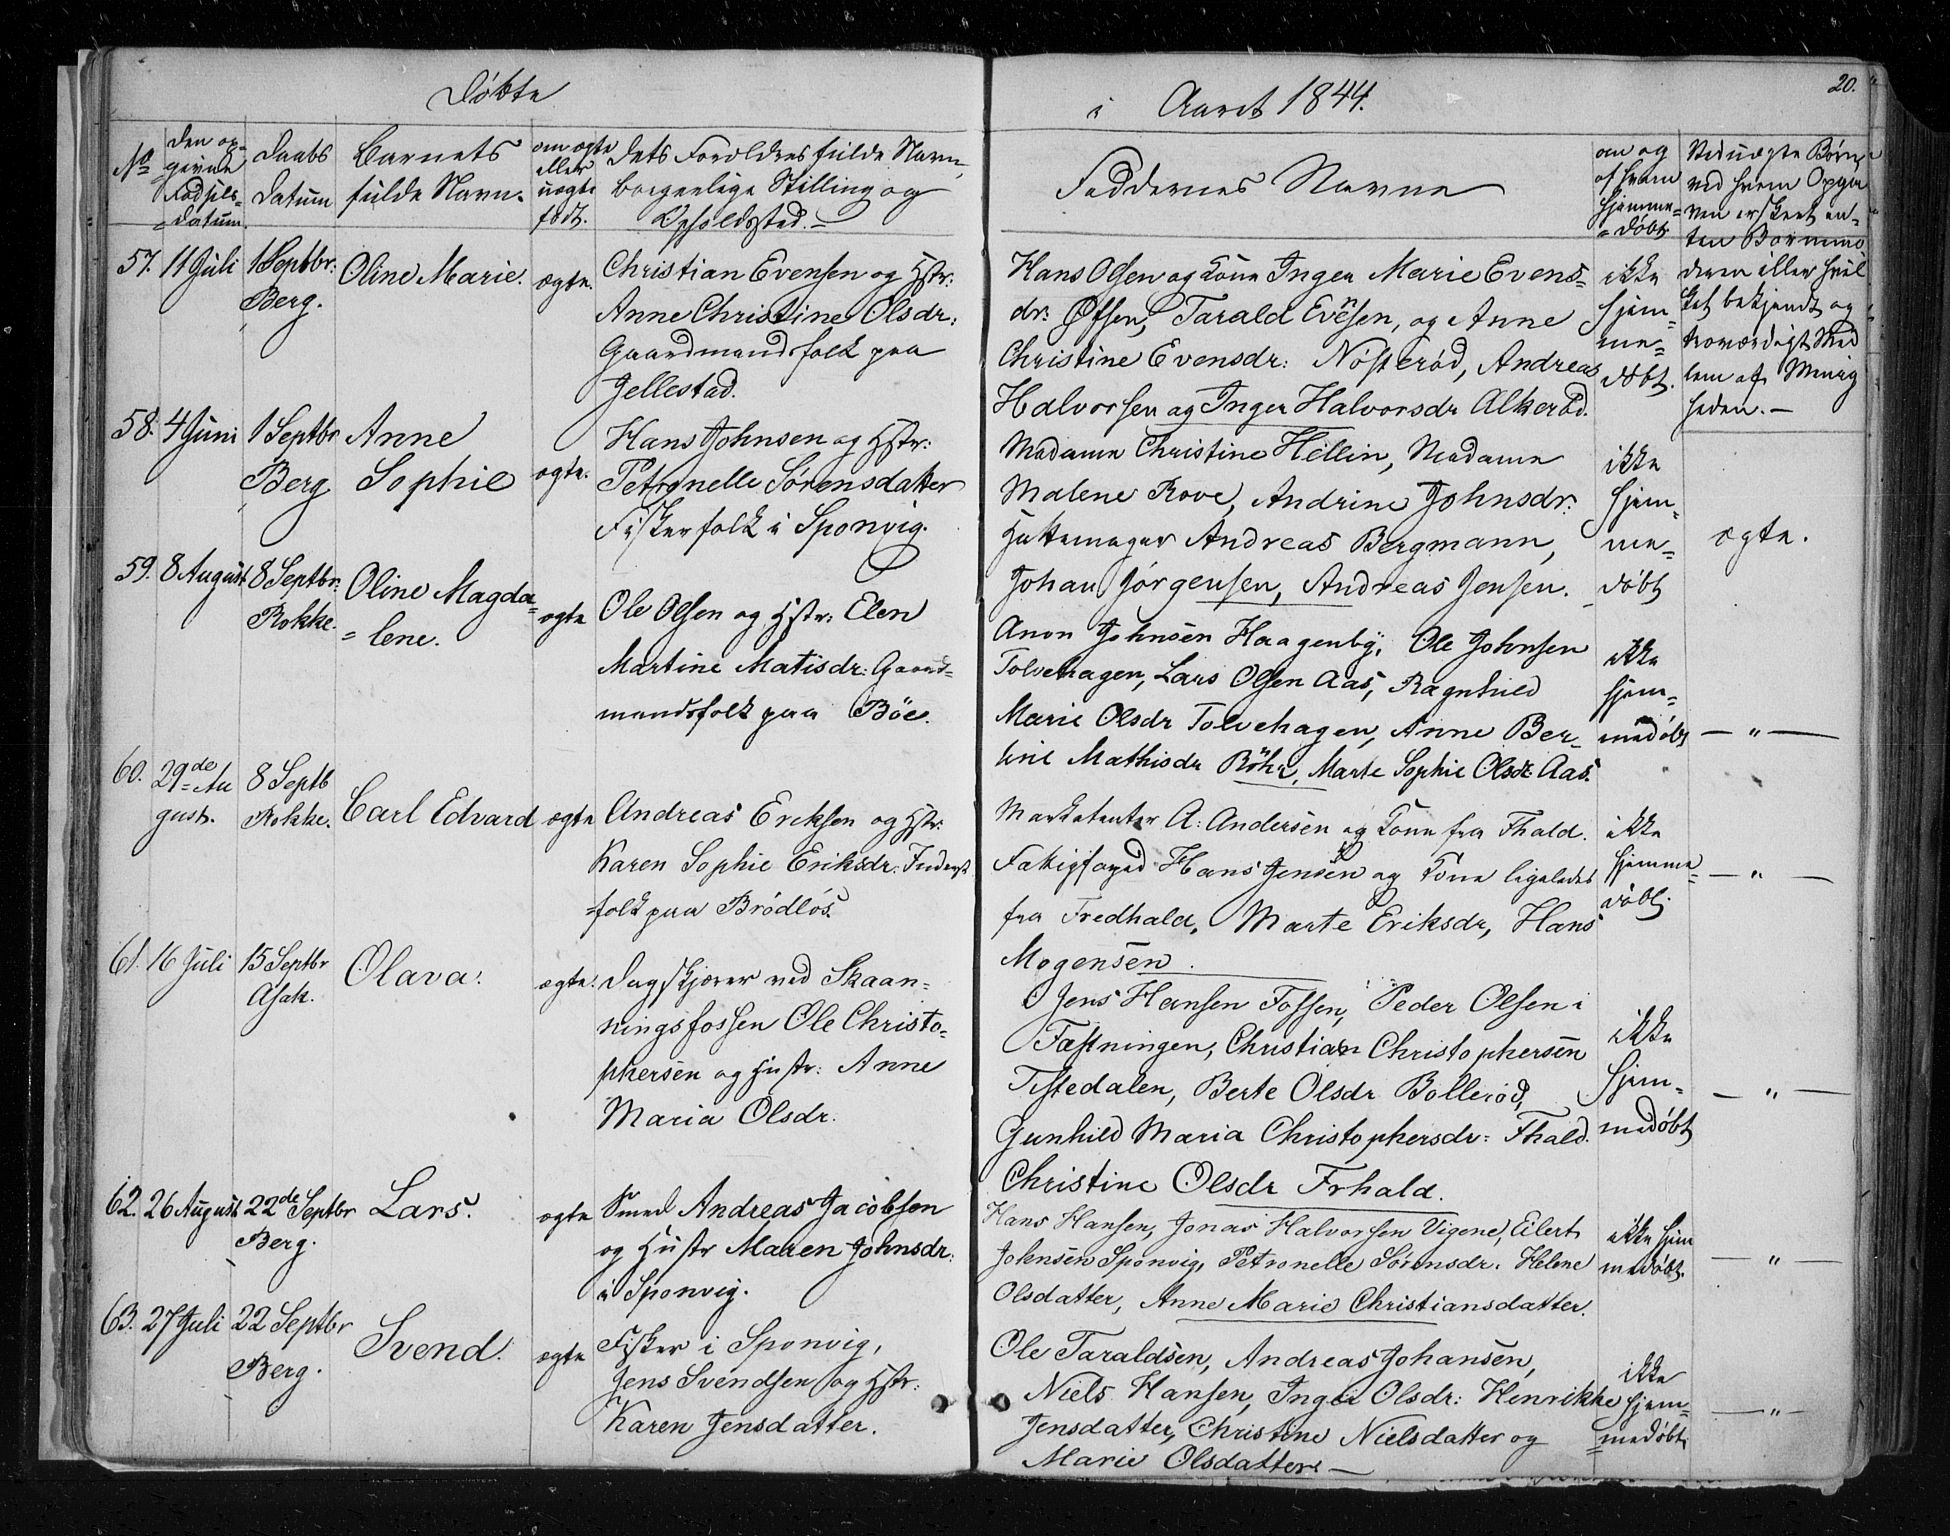 Døbte
i Aaret 1844.
20.
No
den op-
givne
Fødsels-
datum.
Daabs
Datum
Barnets
fulde Navn.
om ægte
eller
uægte
født.
dets Forældres fulde Navn,
borgerlige Stilling og
Opholdssted.
Faddernes Navne
om og
af hvem
hjemme-
døbt
Ved uægte Børn
ved hvem Opga
ven er skeet en-
ten Barnemo
deren eller hvil
ket bekjendt og
troværdigt Med
lem af Menig
heden.
57. 11 Juli
1 Septbr:
Berg.
Oline Marie.
ægte.
Christian Evensen og Hstr:
Anne Christine Olsdr:
Gaardmandsfolk paa
Jellestad.
Hans Olsen og Kone Inger Marie Evens-
dr: Øfsen, Tarald Evensen, og Anne
Christine Evensdr: Nösterød, Andreas
Halvorsen og Inger Halvorsdr Alkerød.
ikke
hjem-
me-
døbt.
58. 4 Juni
1 Septbr
Berg
Anne
Sophie
ægte.
Hans Johnsen og Hstr:
Petronelle Sørensdatter
Fiskerfolk i Sponvig.
Madame Christine Hellin, Madame
Malene Rove, Andrine Johnsdr:
Hattemager Andreas Bergmann,
Johan Jørgensen, Andreas Jensen.
ikke
hjem-
me-
døbt
ægte.
59. 8 August
8 Septbr:
Rokke.
Oline Magda-
lene.
ægte
Ole Olsen og Hstr: Elen
Martine Matisdr: Gaard-
mandsfolk paa Böe.
Anon Johnsen Haagenby, Ole Johnsen
Tolvehagen, Lars Olsen Aas, Ragnhild
Marie Olsdr Tolvehagen, Anne Ber-
line Mathisdr Röhr, Marte Sophie Olsdr Aas.
ikke
hjem-
medøbt
— " —
60. 29de Au
gust.
8 Septb
Rokke.
Carl Edvard
ægte
Andreas Eriksen og Hstr:
Karen Sophie Eriksdr: Inderst
folk paa Brödlös.
Marketenter A: Andersen og Kone fra Fhald.
Fattigfoged Hans Jensen og Kone ligeledes
fra Fredhald, Marte Eriksdr, Hans
Mogensen.
ikke
hjemme-
døbt.
— " —
61. 16 Juli
15 Septbr
Asak.
Olava.
ægte.
Dagskjærer ved Skaan-
ningsfossen Ole Christo-
phersen og Hustr: Anne
Maria Olsdr.
Jens Hansen Fossen, Peder Olsen i
Fæstningen, Christian Christophersen
Tistedalen, Berte Olsdr Bollerød,
Gunhild Maria Christophersdr: Fhald.
Christine Olsdr Frhald.
ikke
hjem-
medøbt
— " —
62. 26 August
22de Septbr
Berg.
Lars.
ægte
Smed Andreas Jacobsen
og Hustr Maren Johnsdr:
i Sponvig.
Hans Hansen, Jonas Halvorsen Vigene, Eilert
Johnsen Sponvig, Petronelle Sørensdr. Helene
Olsdatter, Anne Marie Christiansdatter.
ikke hjem
medøbt.
— " —
63. 27 Juli
22 Septbr
Berg.
Svend.
ægte
Fisker i Sponvig,
Jens Svendsen og Hstr:
Karen Jensdatter.
Ole Taraldsen, Andreas Johansen,
Niels Hansen, Inger Olsdr: Henrikke
Jensdatter, Christine Nielsdatter og
Marie Olsdatter. —
ikke
hjem-
medøbt
— " —